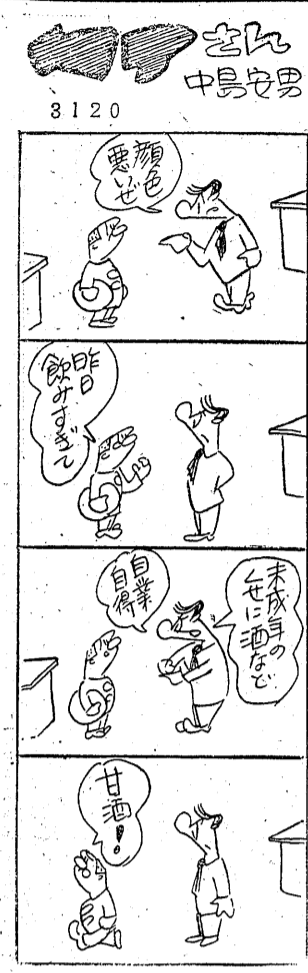 さん
中島安男
3120
顔色
悪いぜ
昨日
飲みすぎて
未成年の
くせに酒など
自業
自得
甘酒!!